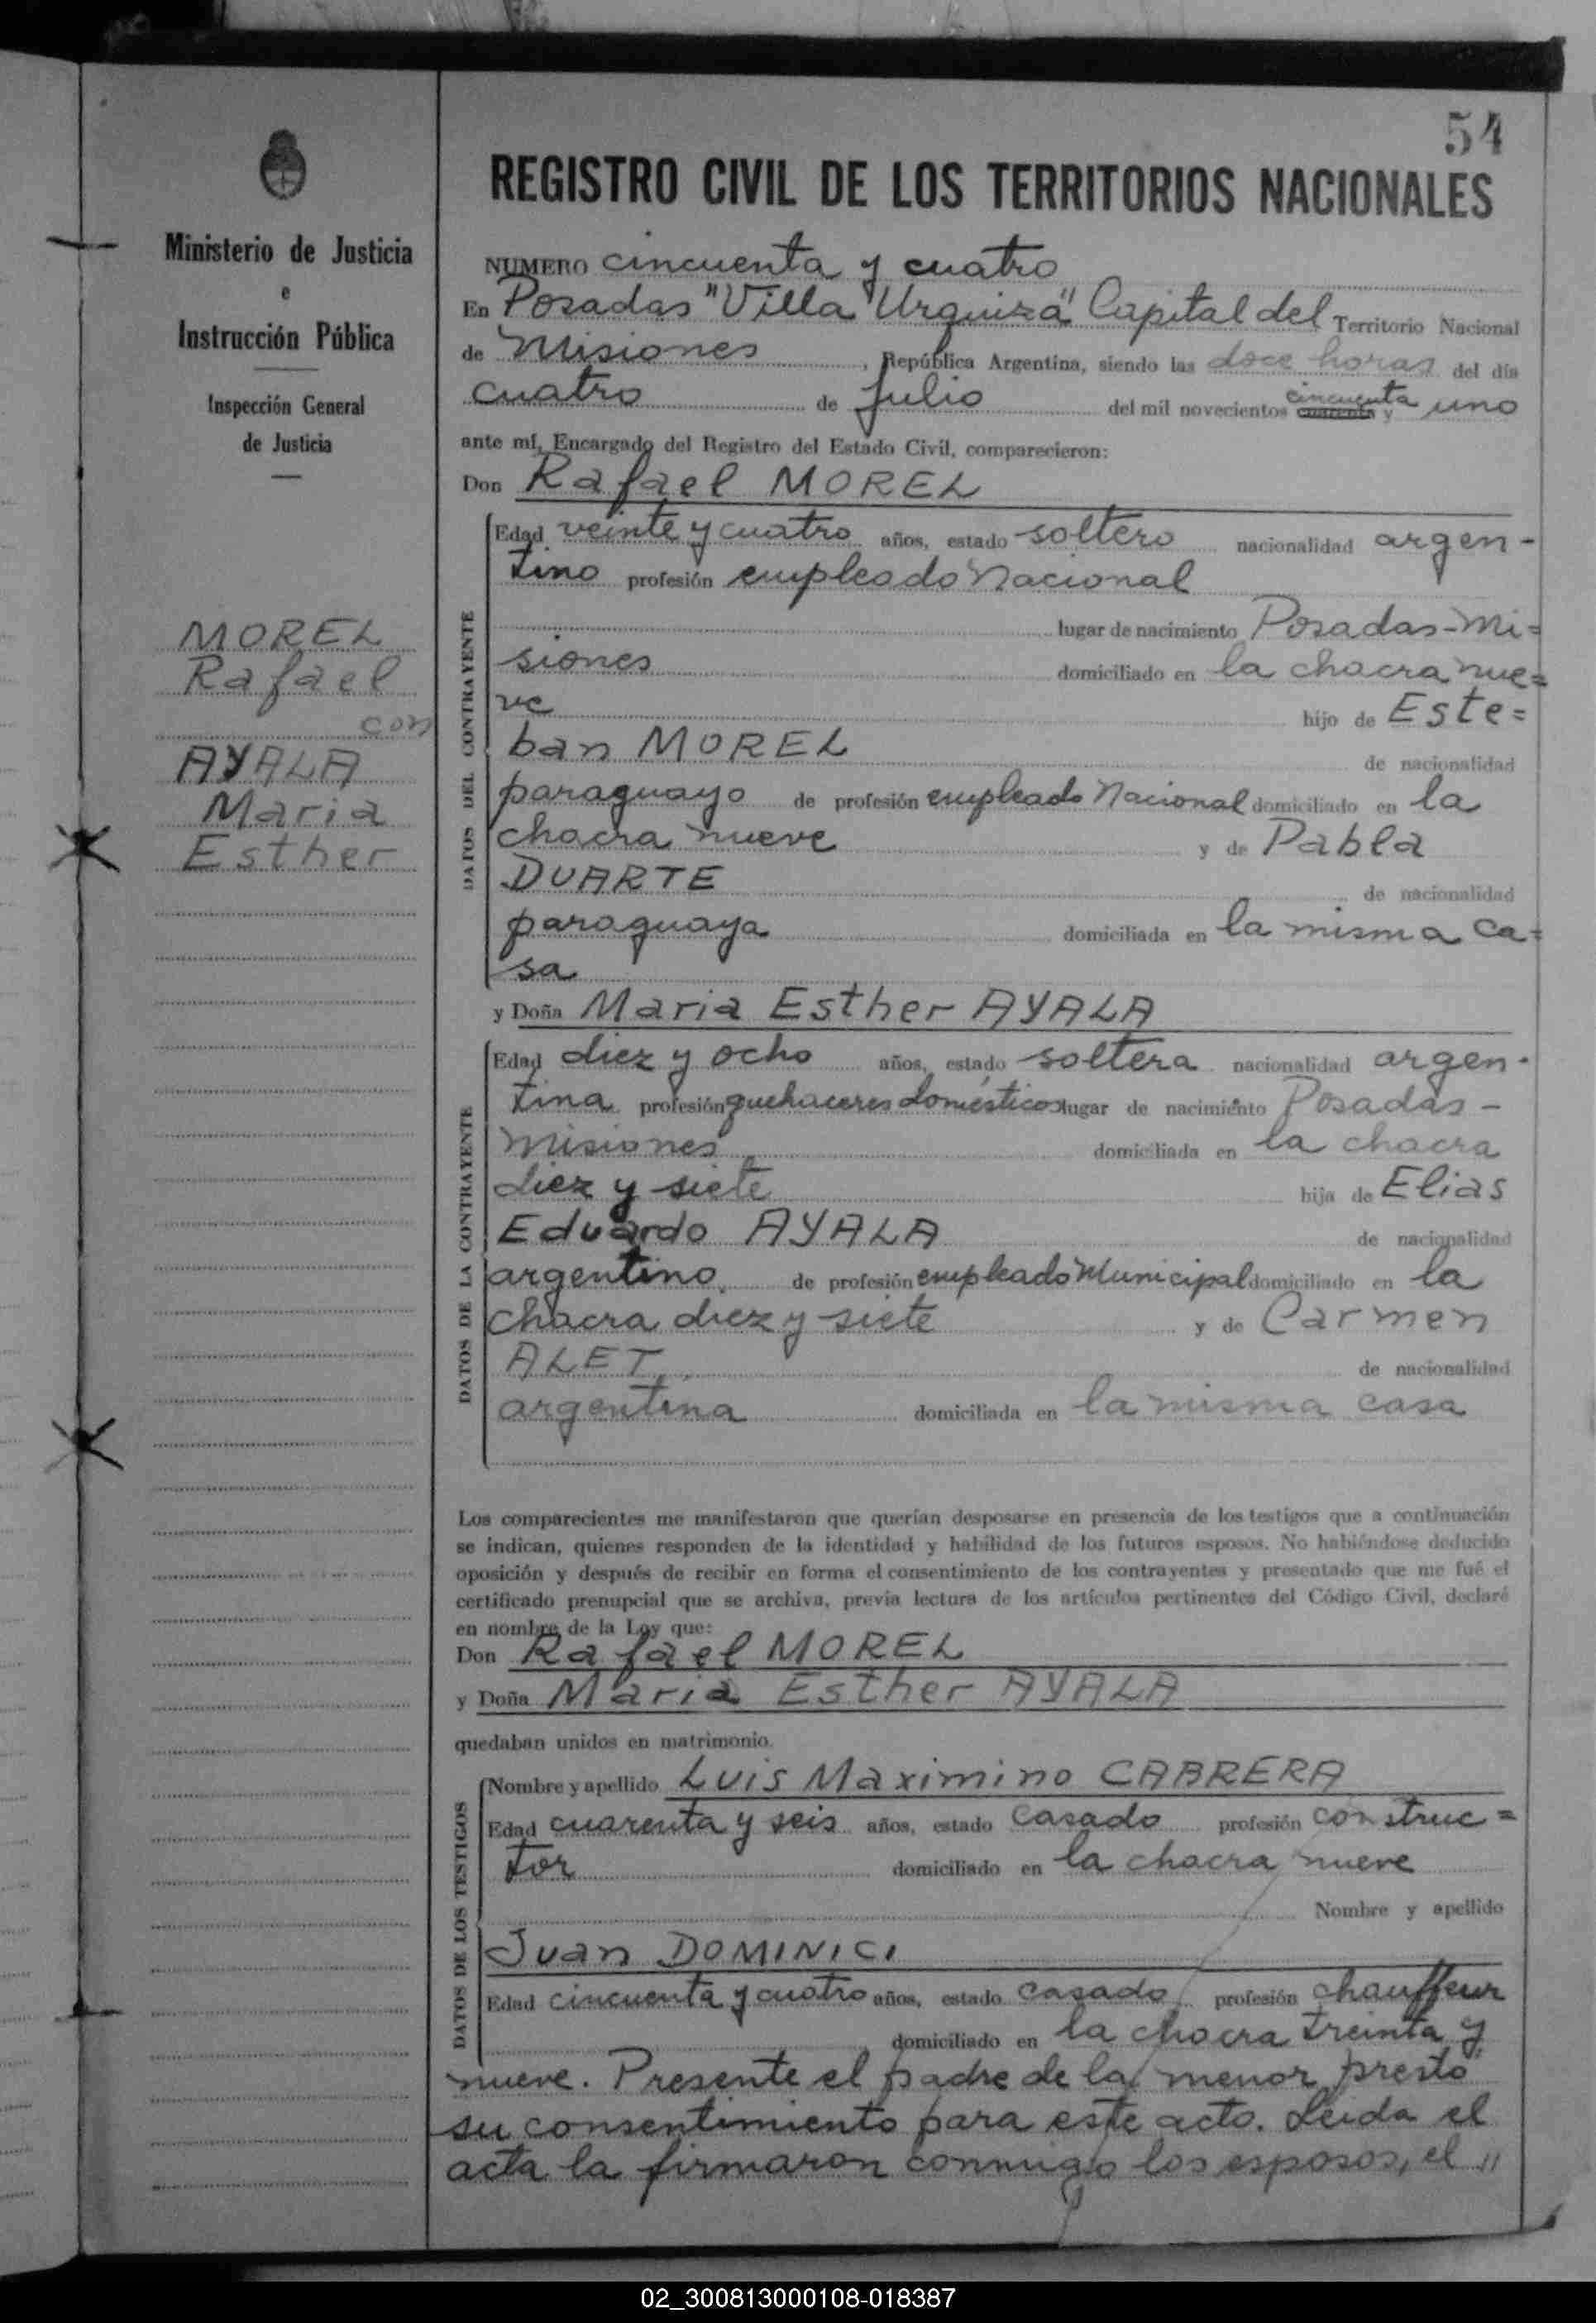 54
REGISTRO CIVIL DE LOS TERRITORIOS NACIONALES
Ministerio de Justicia
e
Instrucción Pública
Inspección General
de Justicia
MOREL
Rafael
con
AYALA
Maria
Esther
NUMERO cincuenta y cuatro
En Posadas "Villa Urquiza" Capital del Territorio Nacional
de Misiones, República Argentina, siendo las doce horas del día
cuatro de julio del mil novecientos cincuenta y uno
ante mí, Encargado del Registro del Estado Civil, comparecieron:
Don Rafael MOREL
DATOS DEL CONTRAYENTE
Edad veinte y cuatro años, estado soltero nacionalidad argen-
tino profesión empleado Nacional
lugar de nacimiento Posadas-Mi=
siones domiciliado en la chacra nue=
ve hijo de Este=
ban MOREL de nacionalidad
paraguayo de profesión empleado Nacional domiciliado en la
chacra nueve y de Pabla
DUARTE de nacionalidad
paraguaya domiciliada en la misma ca=
sa
y Doña Maria Esther AYALA
DATOS DE LA CONTRAYENTE
Edad diez y ocho años, estado soltera nacionalidad argen-
tina profesión quehaceres domésticos lugar de nacimiento Posadas-
Misiones domiciliada en la chacra
diez y siete hija de Elias
Eduardo AYALA de nacionalidad
argentino, de profesión empleado Municipal domiciliado en la
chacra diez y siete y de Carmen
ALET de nacionalidad
argentina domiciliada en la misma casa
Los comparecientes me manifestaron que querían desposarse en presencia de los testigos que a continuación
se indican, quienes responden de la identidad y habilidad de los futuros esposos. No habiéndose deducido
oposición y después de recibir en forma el consentimiento de los contrayentes y presentado que me fué el
certificado prenupcial que se archiva, previa lectura de los artículos pertinentes del Código Civil, declaré
en nombre de la Ley que:
Don Rafael MOREL
y Doña Maria Esther AYALA
quedaban unidos en matrimonio.
DATOS DE LOS TESTIGOS
Nombre y apellido Luis Maximino CABRERA
Edad cuarenta y seis años, estado casado profesión construc=
tor domiciliado en la chacra nueve
Nombre y apellido
Juan DOMINICI
Edad cincuenta y cuatro años, estado casado profesión chauffeur
domiciliado en la chacra treinta y
nueve. Presente el padre de la menor prestó
su consentimiento para este acto. Leida el
acta la firmaron conmigo los esposos, el "
02_300813000108-018387